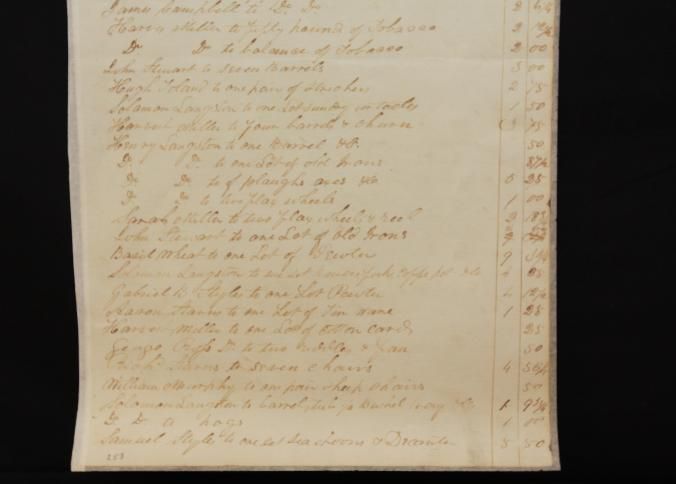 James Campbell to Do. Do 2 6¼
Harvey Miller to fifty pound of Tobacco 2 12½
Do Do to balance of Tobacco 2 00
John Stewart to seven Barrels 3 00
Hugh Toland to one pair of 2 75
Solomon Langston to one Lot sundry 1 50
Miller to four barrels & churn 75
Henry Langston to one Barrel &c. 50
Do. Do. to one Lot of old Irons 87½
Do. Do. to plaughs axes &c 25
Do. Do to two flax wheels 1 00
Sarah Miller to two flax wheels & reel
John Stewart to one Lot of Old Irons
Basil Wheat to one Lot of Pewter 9
Solomon Langston to one Lot pot &c 4 25
Gabriel B. Styles to one Lot Pewter 4 12½
Aaron Starns to one Lot of Tin ware 1 25
Miller to one Lot of cotton cards 25
George Ross Dr to two & 50
Starns to seven chairs 4 56¼
William Murphy to one pair sheep shears 50
Solomon Langston to barrel &c 1 93¾
Do. Do to hogs 1 00
Samuel Styles to one set tea spoons & Decanter 5 50
253